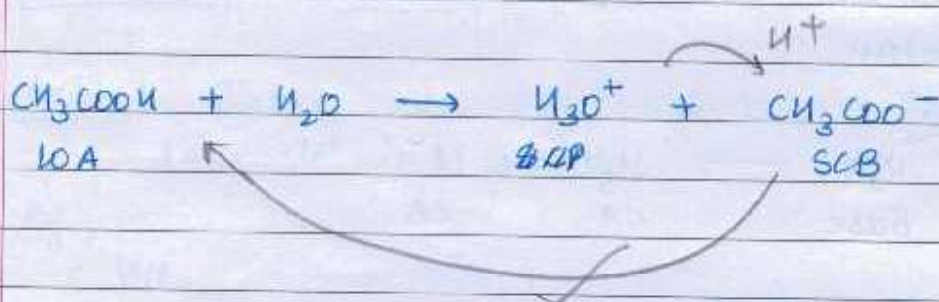 H⁺
CH₃COOH + H₂O → H₃O⁺ + CH₃COO⁻
WA SCB